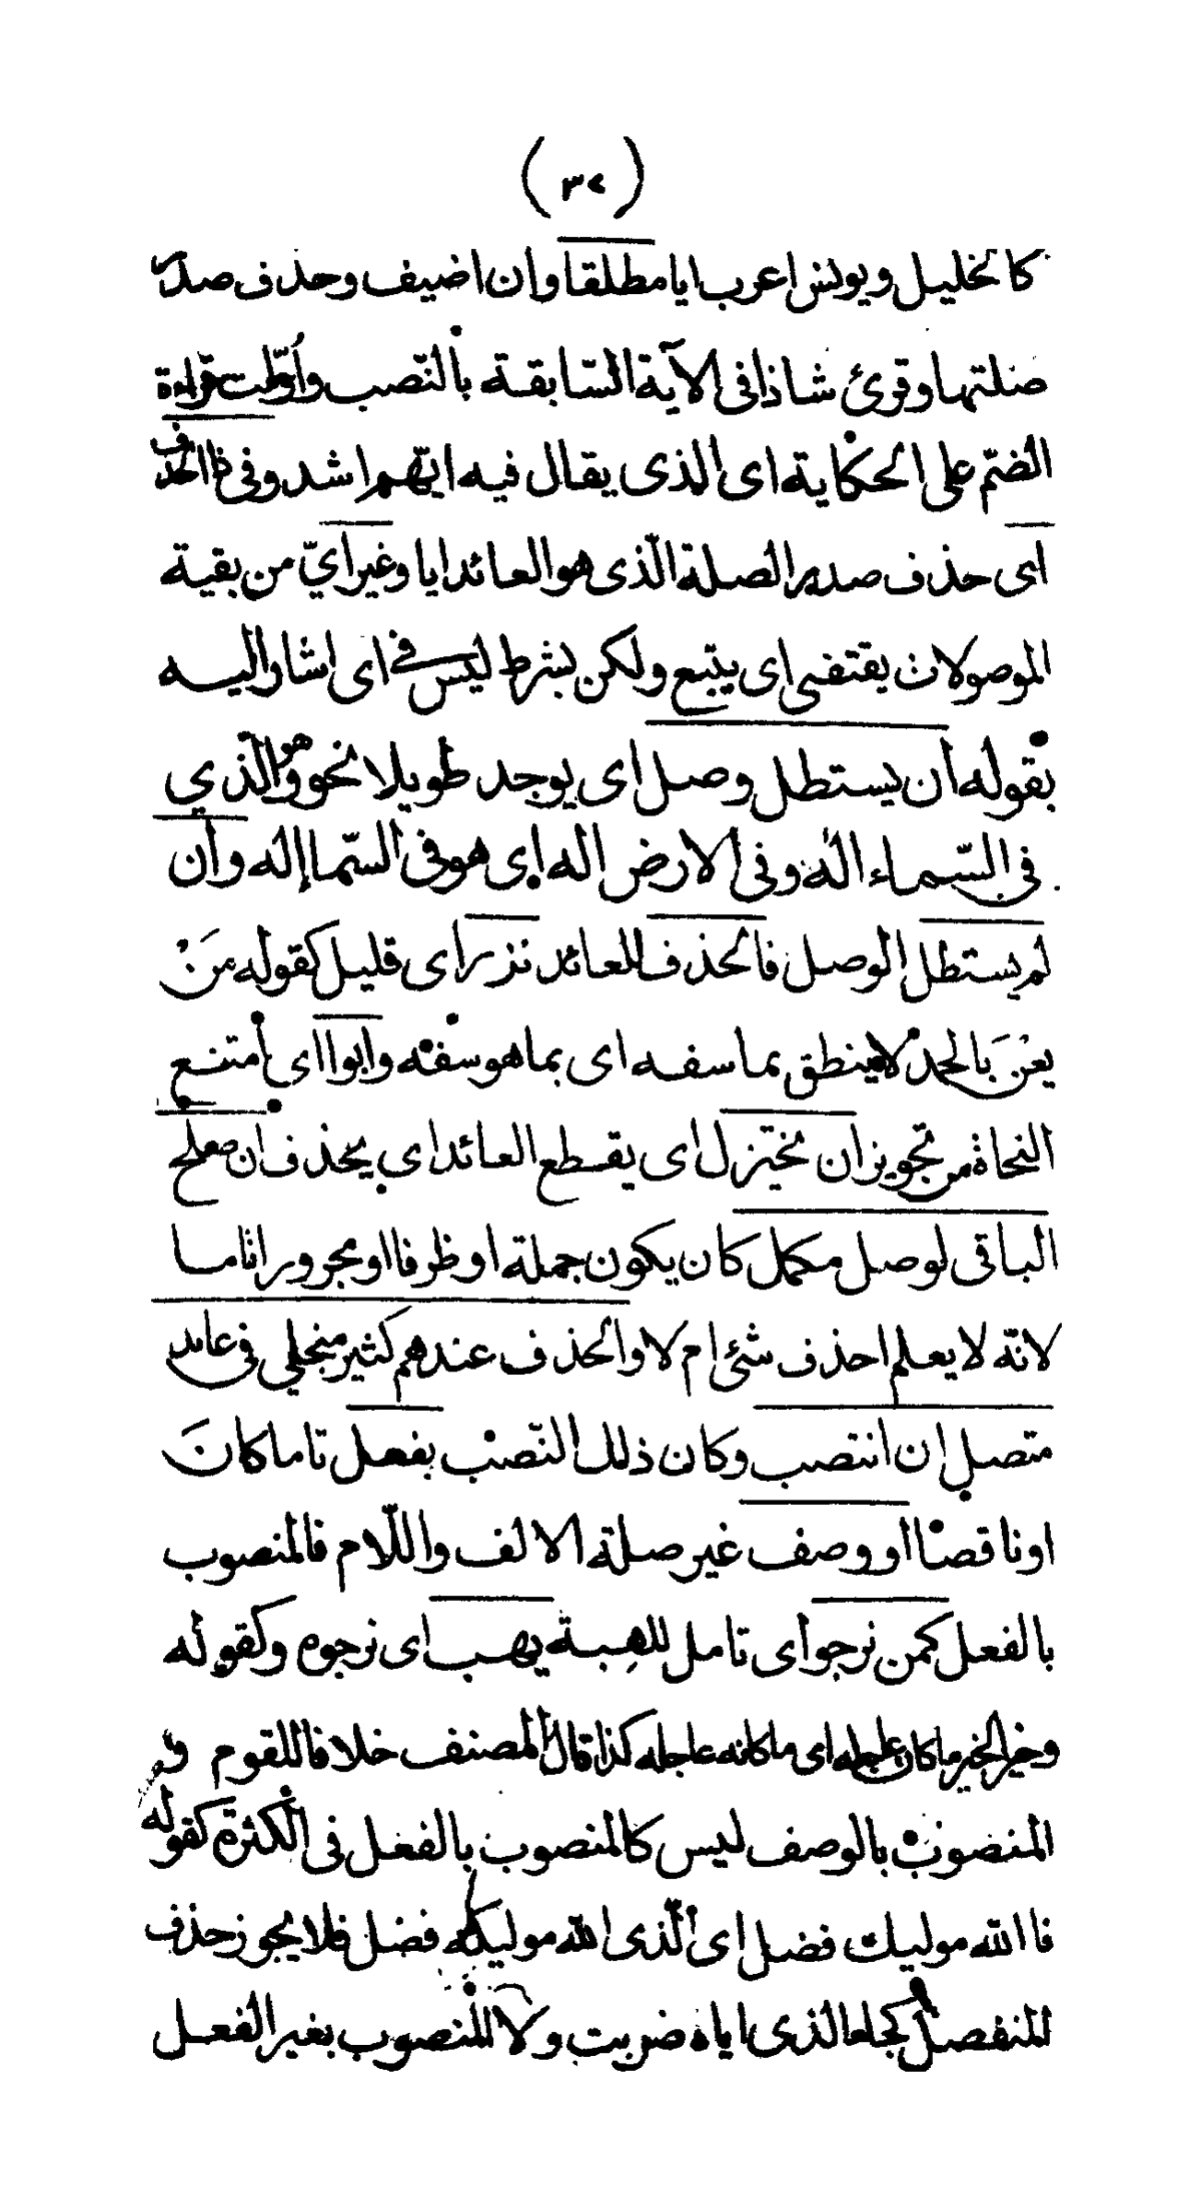 (٣٧)
كالخليل ويونس اعرب ايا مطلقا وان اضيف وحذف صدر
صلتها وقرئ شاذا فى الآية السّابقة بالنّصب واوّلت قراءة
الضّم على الحكاية اى الذى يقال فيه ايّهم اشد وفى ذا الحذف
اى حذف صدر الصلة الّذى هو العائد ايا وغير ايّ من بقية
الموصولات يقتفى اى يتبع ولكن بشرط ليس فى اى اشار اليه
بقوله ان يستطل وصل اى يوجد طويلا نحو وهو الّذي
فى السّماء اله وفى الارض اله اى هو فى السّما إله وان
لم يستطل الوصل فالحذف للعائد نزر اى قليل كقوله مَنْ
يعْنَ بالحمد لا ينطق بما سفه اى بما هو سفه وابوا اى امتنع
النحاة من تجويز ان يختزل اى يقطع العائد اى يحذف ان صلح
الباقى لوصل مكمل كان يكون جملة او ظرفا او مجرورا تاما
لانّه لا يعلم احذف شئ ام لا والحذف عندهم كثير منجلي فى عائد
متصل ان انتصب وكان ذلك النّصب بفعل تاما كانَ
او ناقصا او وصف غير صلة الالف واللّام فالمنصوب
بالفعل كمن نرجو اى تامل للهِبة يهب اى نرجوه وكقوله
وخير الخير ما كان عاجله اى ما كانه عاجله كذا قال المصنف خلافا للقوم و
المنصوب بالوصف ليس كالمنصوب بالفعل فى الكثرة كقوله
فا الله موليك فضل اى الّذى الله موليكه فضل فلا يجوز حذف
المنفصل كجاء الذى اياه ضربت ولا المنصوب بغير الفعل